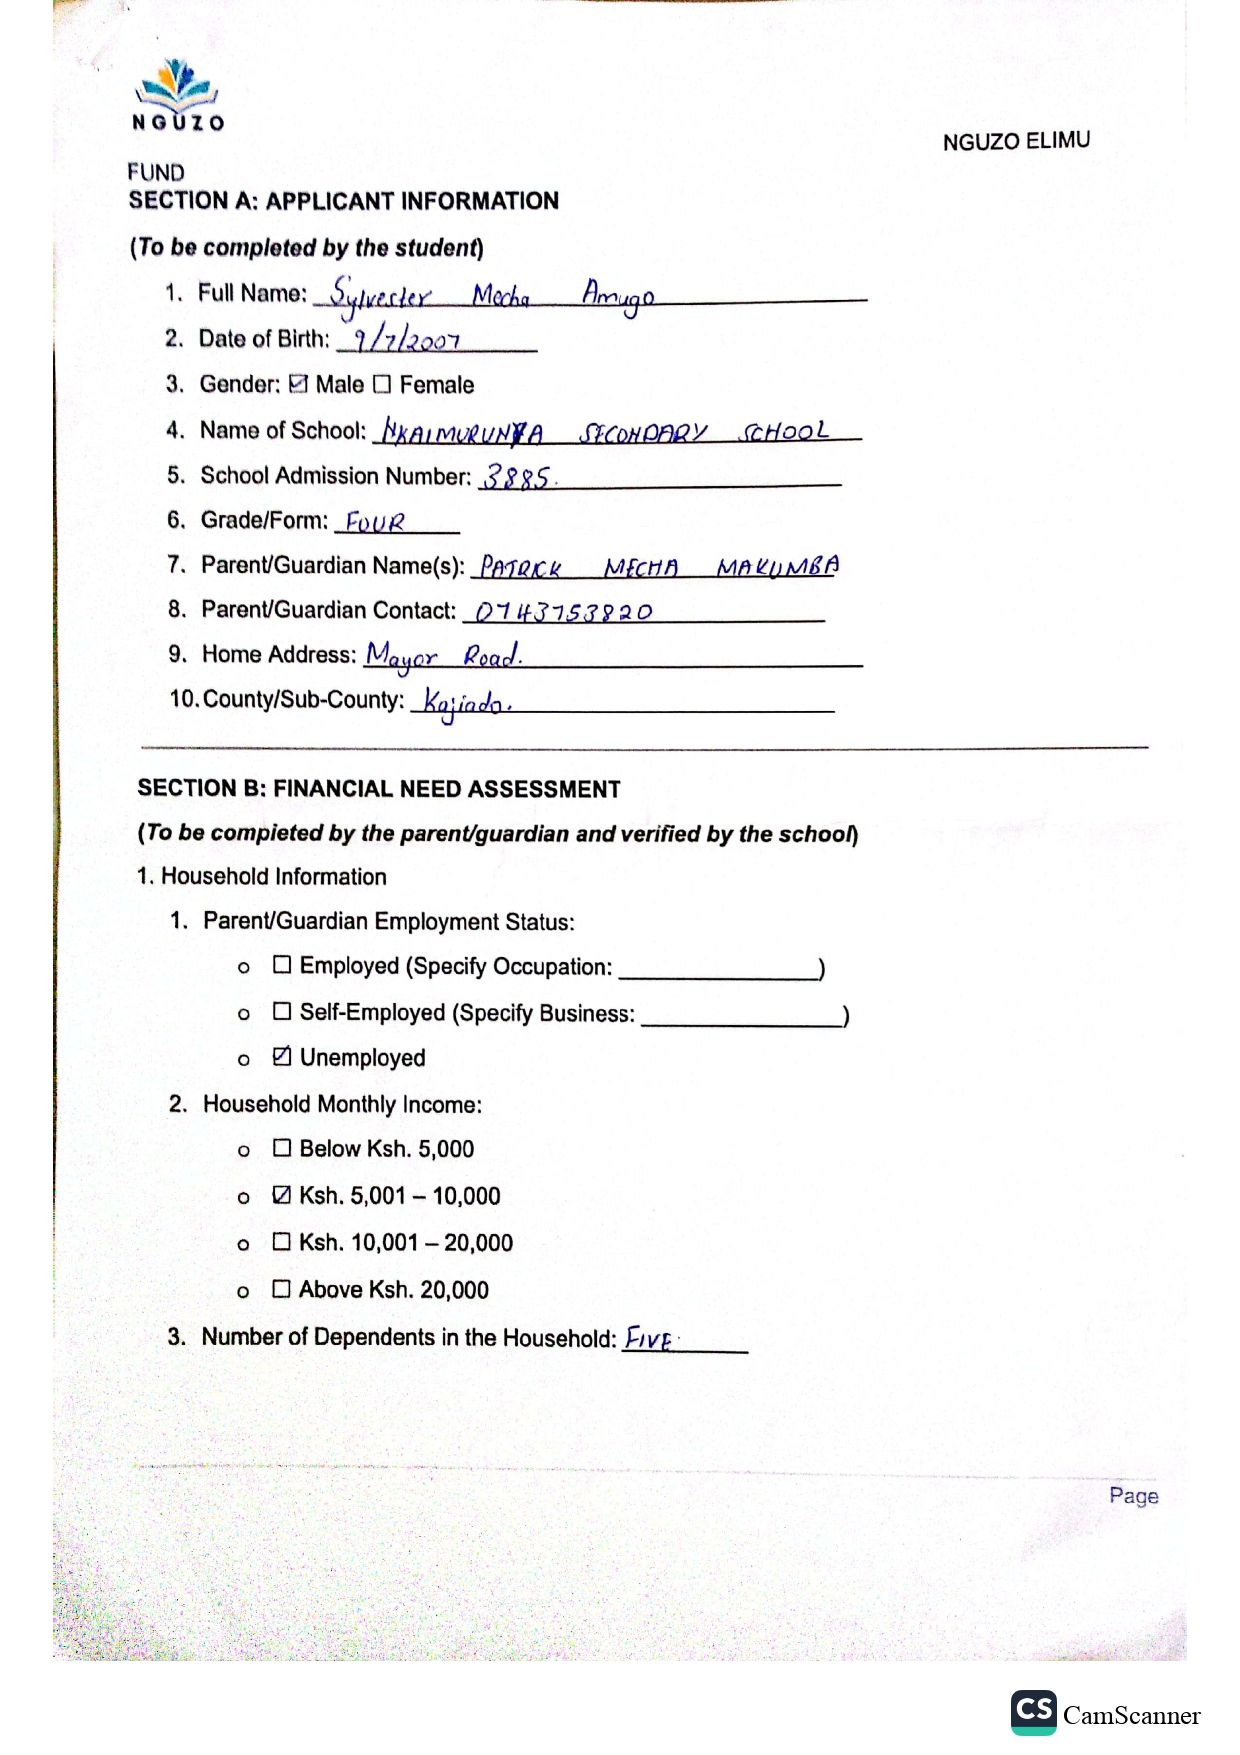 NGUZO
NGUZO ELIMU
FUND
SECTION A: APPLICANT INFORMATION
(To be completed by the student)
1. Full Name: Sylvester Mecha Amugo
2. Date of Birth: 9/7/2007
3. Gender: ☑ Male ☐ Female
4. Name of School: NKAIMURUNYA SECONDARY SCHOOL
5. School Admission Number: 3885.
6. Grade/Form: FOUR
7. Parent/Guardian Name(s): PATRICK MECHA MAKUMBA
8. Parent/Guardian Contact: 0743753820
9. Home Address: Mayor Road.
10. County/Sub-County: Kajiado.
SECTION B: FINANCIAL NEED ASSESSMENT
(To be completed by the parent/guardian and verified by the school)
1. Household Information
1. Parent/Guardian Employment Status:
o ☐ Employed (Specify Occupation: ____________)
o ☐ Self-Employed (Specify Business: ____________)
o ☑ Unemployed
2. Household Monthly Income:
o ☐ Below Ksh. 5,000
o ☑ Ksh. 5,001 – 10,000
o ☐ Ksh. 10,001 – 20,000
o ☐ Above Ksh. 20,000
3. Number of Dependents in the Household: FIVE
Page
CS CamScanner